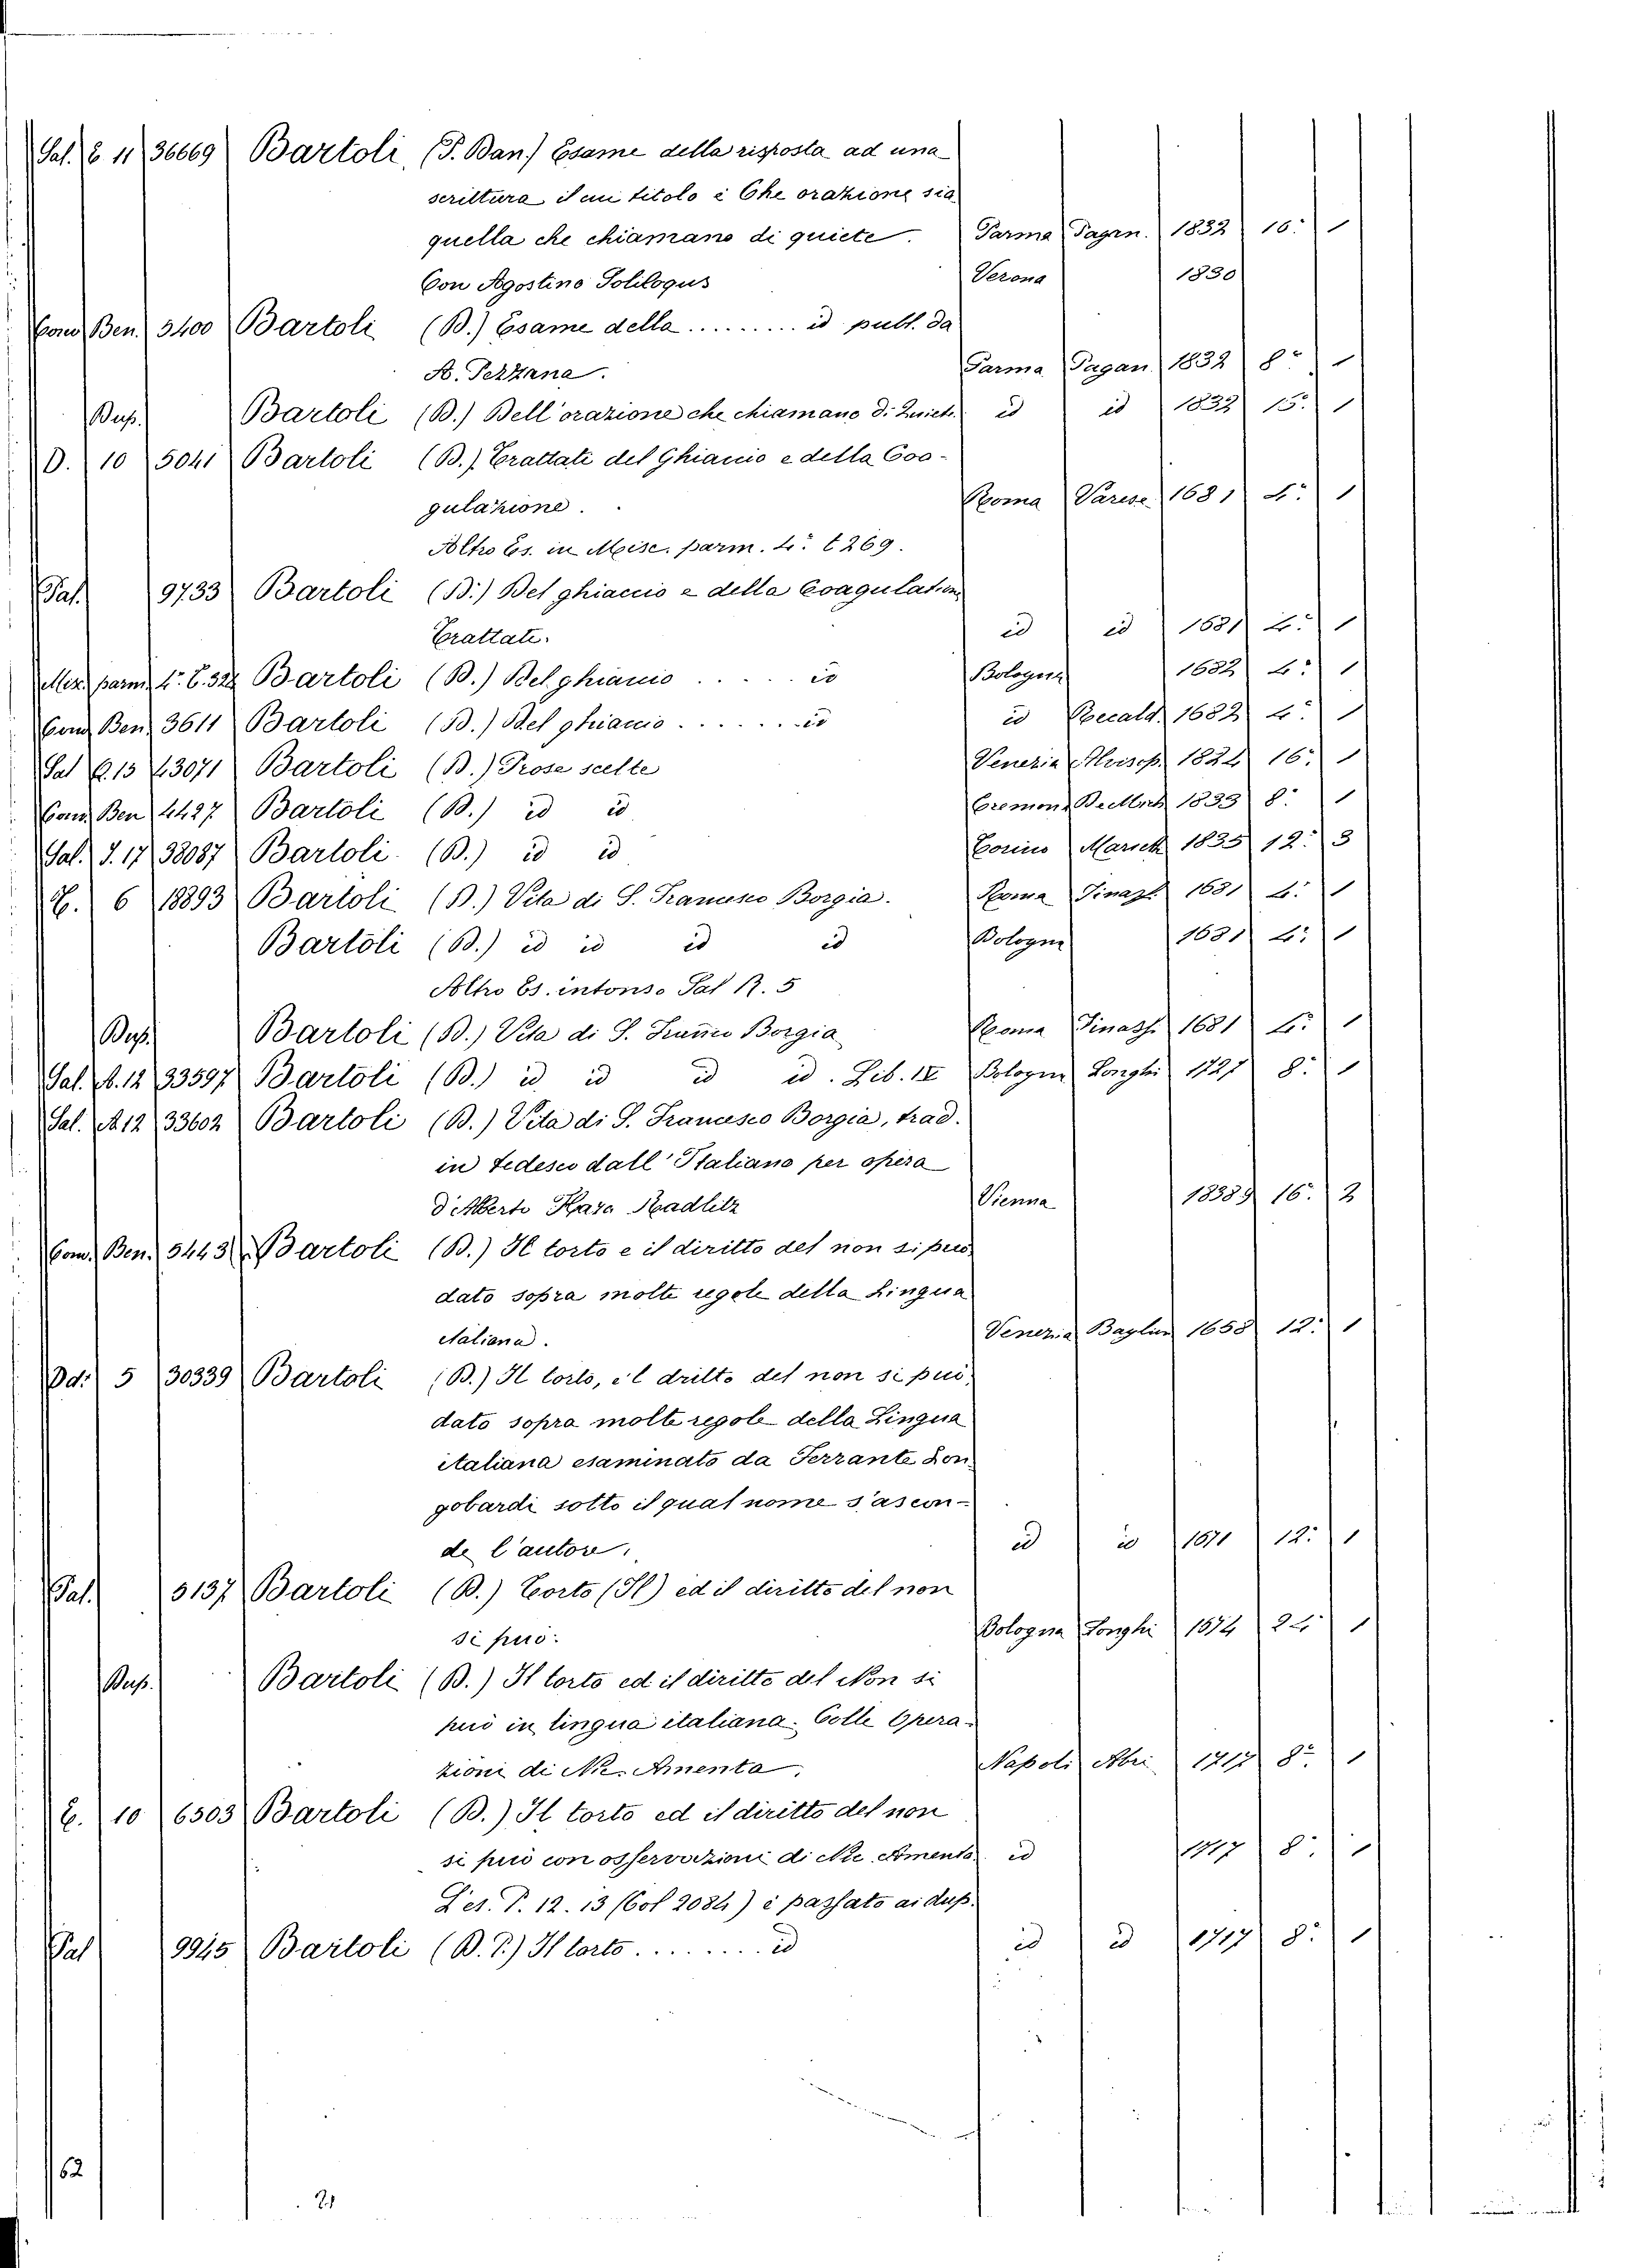 Sal. E 11 36669 Bartoli (P. Dan.) Esame della risposta ad una
scrittura il cui titolo è Che orazione sia
quella che chiamano di quiete. Parma Pagan. 1832 16° 1
Con Agostino Soliloqus Verona 1830
Com Ben. 3400 Bartoli (B.) Esame della ......... id publ. da
A. Pezzana. Parma Pagan 1832 8° 1
Dup. Bartoli (B.) Dell'orazione che chiamano di Quiete id id 1832 15. 1
D. 10 5041 Bartoli (B.) Trattati del Ghiaccio e della Coa-
gulazione. Roma Varese 1681 4° 1
Altro Es. in Misc. parm. 4° t 269.
Pal. 9733 Bartoli (B.) Del ghiaccio e della Coagulation
Trattati. id id 1681 4° 1
Misc. parm. 4° t. 324 Bartoli (B.) Del ghiaccio ..... id Bologna 1682 4° 1
Com Ben. 3611 Bartoli (B.) Del ghiaccio ...... id id Recald. 1682 4° 1
Sal Q.13 43071 Bartoli (B.) Prose scelte Venezia 1824 16° 1
Com. Ben 4427 Bartoli (B.) id id Cremona 1833 8° 1
Sal. I. 17 38087 Bartoli (B.) id id Torino Mariett 1835 12° 3
E. 6 18893 Bartoli (B.) Vita di S. Francesco Borgia. Roma Tinass. 1681 4° 1
Bartoli (B.) id id id id Bologna 1681 4° 1
Altro Es. intonso Sal R. 5
Dup. Bartoli (B.) Vita di S. Franc. Borgia Roma Tinass. 1681 4° 1
Sal. A. 12 33597 Bartoli (B.) id id id id. Lib. IV Bologna Longhi 1727 8° 1
Sal. A 12 33602 Bartoli (B.) Vita di S. Francesco Borgia, trad.
in tedesco dall'Italiano per opera
d'Alberto Radlitz Vienna 18389 16° 2
Com. Ben. 5443 Bartoli (B.) Il torto e il diritto del non si può
dato sopra molte regole della Lingua
italiana. Venezia Baglion 1658 12° 1
Dd. 5 30339 Bartoli (B.) Il torto, e'l dritto del non si può,
dato sopra molte regole della Lingua
italiana esaminato da Ferrante Lon
gobardi sotto il qual nome s'ascon-
de l'autore. id id 1671 12° 1
Pal. 5137 Bartoli (B.) Torto (Il) ed il diritto del non
si può. Bologna Longhi 1674 24° 1
Dup. Bartoli (B.) Il torto ed il diritto del Non si
può in lingua italiana. Colle Opera-
zioni di Nic. Amenta. Napoli Abri 1717 8° 1
E. 10 6503 Bartoli (B.) Il torto ed il diritto del non
si può con osservazioni di Nic. Amenta id 1717 8° 1
L'es. P. 12. 13 (Col 2084) è passato ai dup.
Pal 9945 Bartoli (D. P.) Il torto ........ id id id 1717 8° 1
62
21